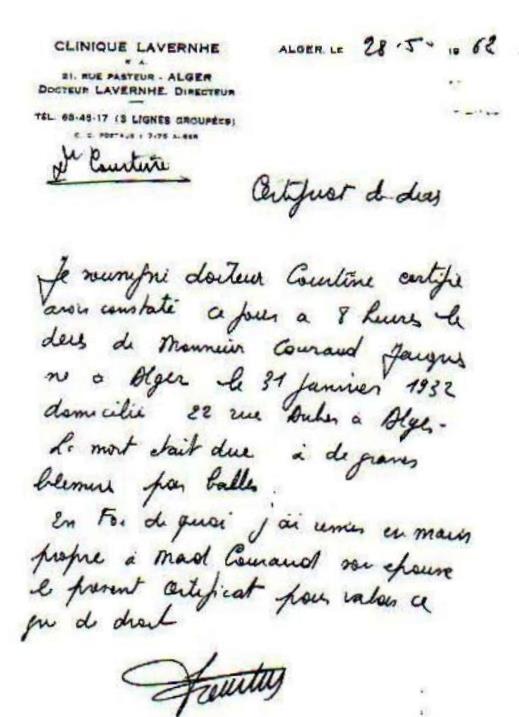 CLINIQUE LAVERNHE
S. A.
21. RUE PASTEUR - ALGER
DOCTEUR LAVERNHE. DIRECTEUR
TÉL. 65-45-17 (3 LIGNES GROUPÉES)
C. C. POSTAUX : 7-75 ALGER
ALGER, LE 28-5- 1962
Dr Courtine
Certificat de deces
Je soussigné docteur Courtine certifie
avoir constaté ce jour a 8 heures le
deces de Monsieur Couraud Jacques
né a Alger le 31 Janvier 1932
domicilié 22 rue à Alger-
La mort etait due à de graves
blessures par balles.
En Foi de quoi j'ai remis en mains
propre à Mad Couraud son epouse
le present certificat pour valoir ce
que de droit